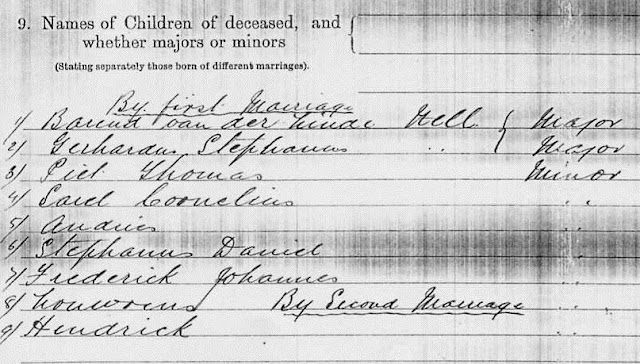 9. Names of Children of deceased, and
whether majors or minors
(Stating separately those born of different marriages).
By first Marriage
1) Barend van der Linde Hell Major
2) Gerhardus Stephanus .. Major
3) Piet Thomas Minor
4) Sarel Cornelius . .
5) Andries . .
6) Stephanus Daniel . .
7) Frederick Johannes . .
8) Louwrens By Second Marriage . .
9) Hendrick . .